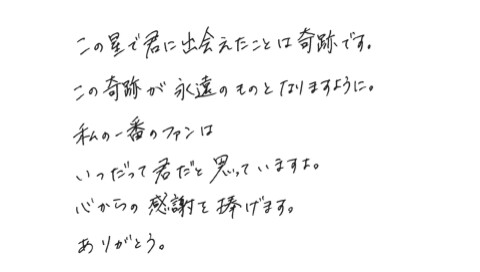 この星で君に出会えたことは奇跡です。
この奇跡が永遠のものとなりますように。
私の一番のファンは
いつだって君だと思っていますよ。
心からの感謝を捧げます。
ありがとう。